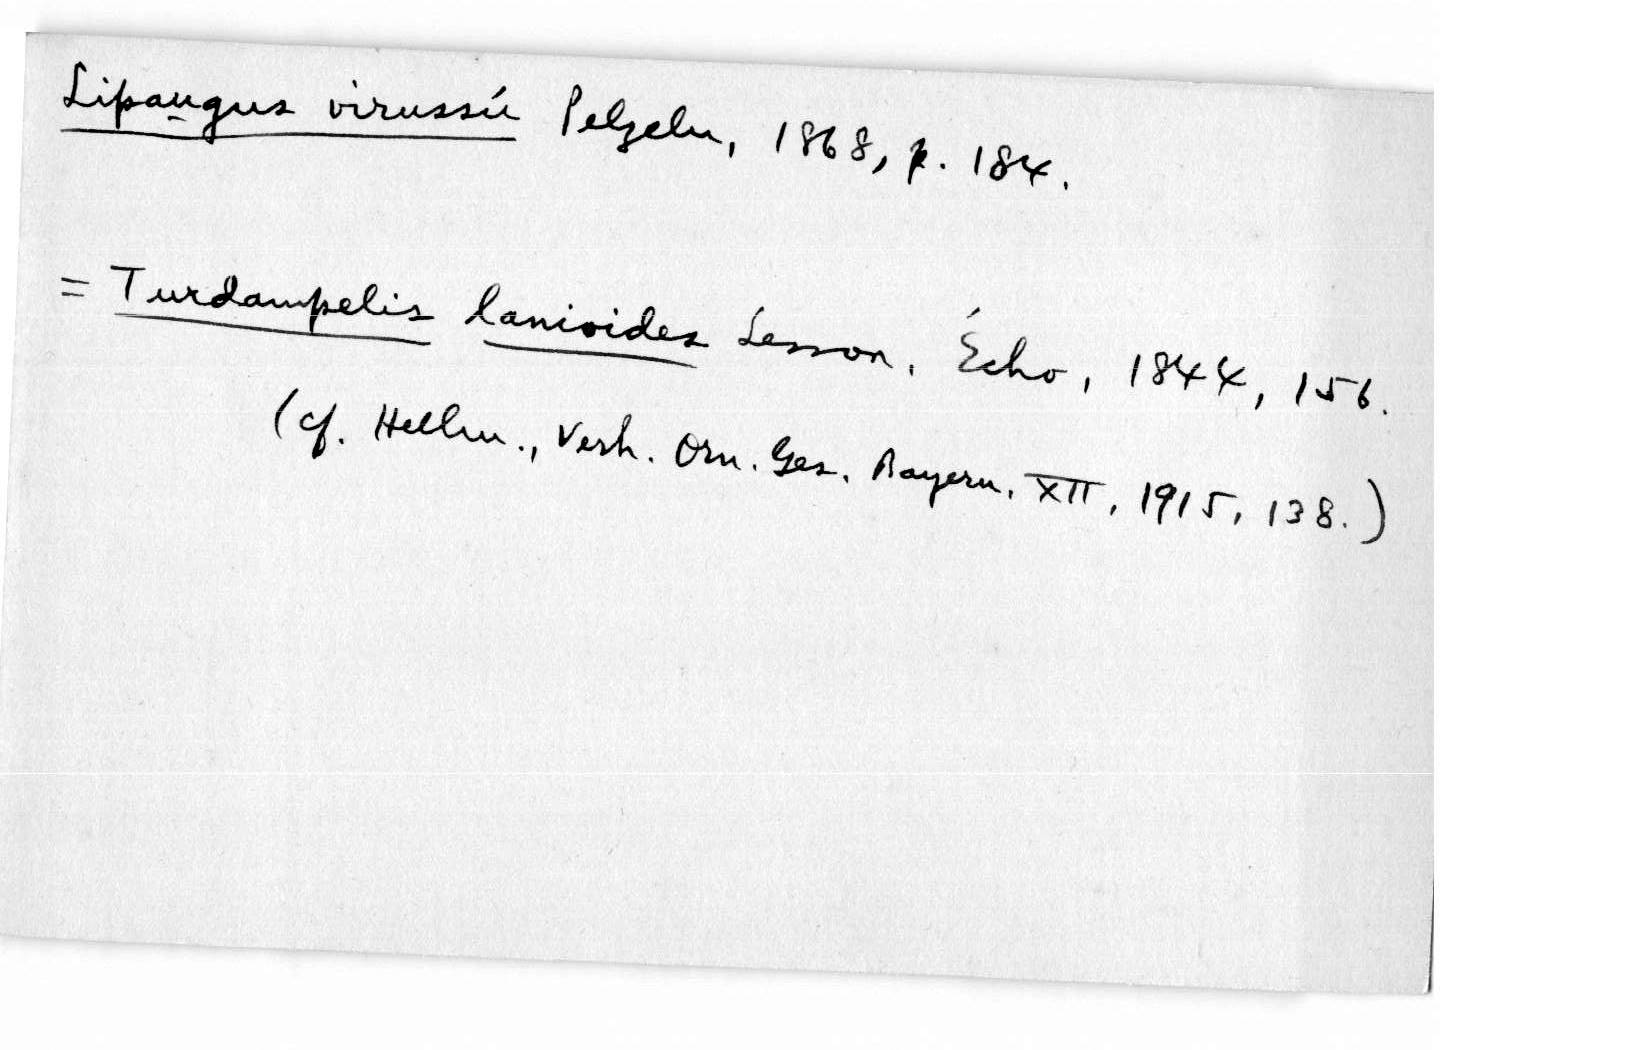 Lipaugus virussú Pelzeln, 1868, p. 184.
= Turdampelis lanioides Lesson, Écho, 1844, 156.
(cf. Hellm., Verh. Orn. Ges. Bayern, XII, 1915, 138.)